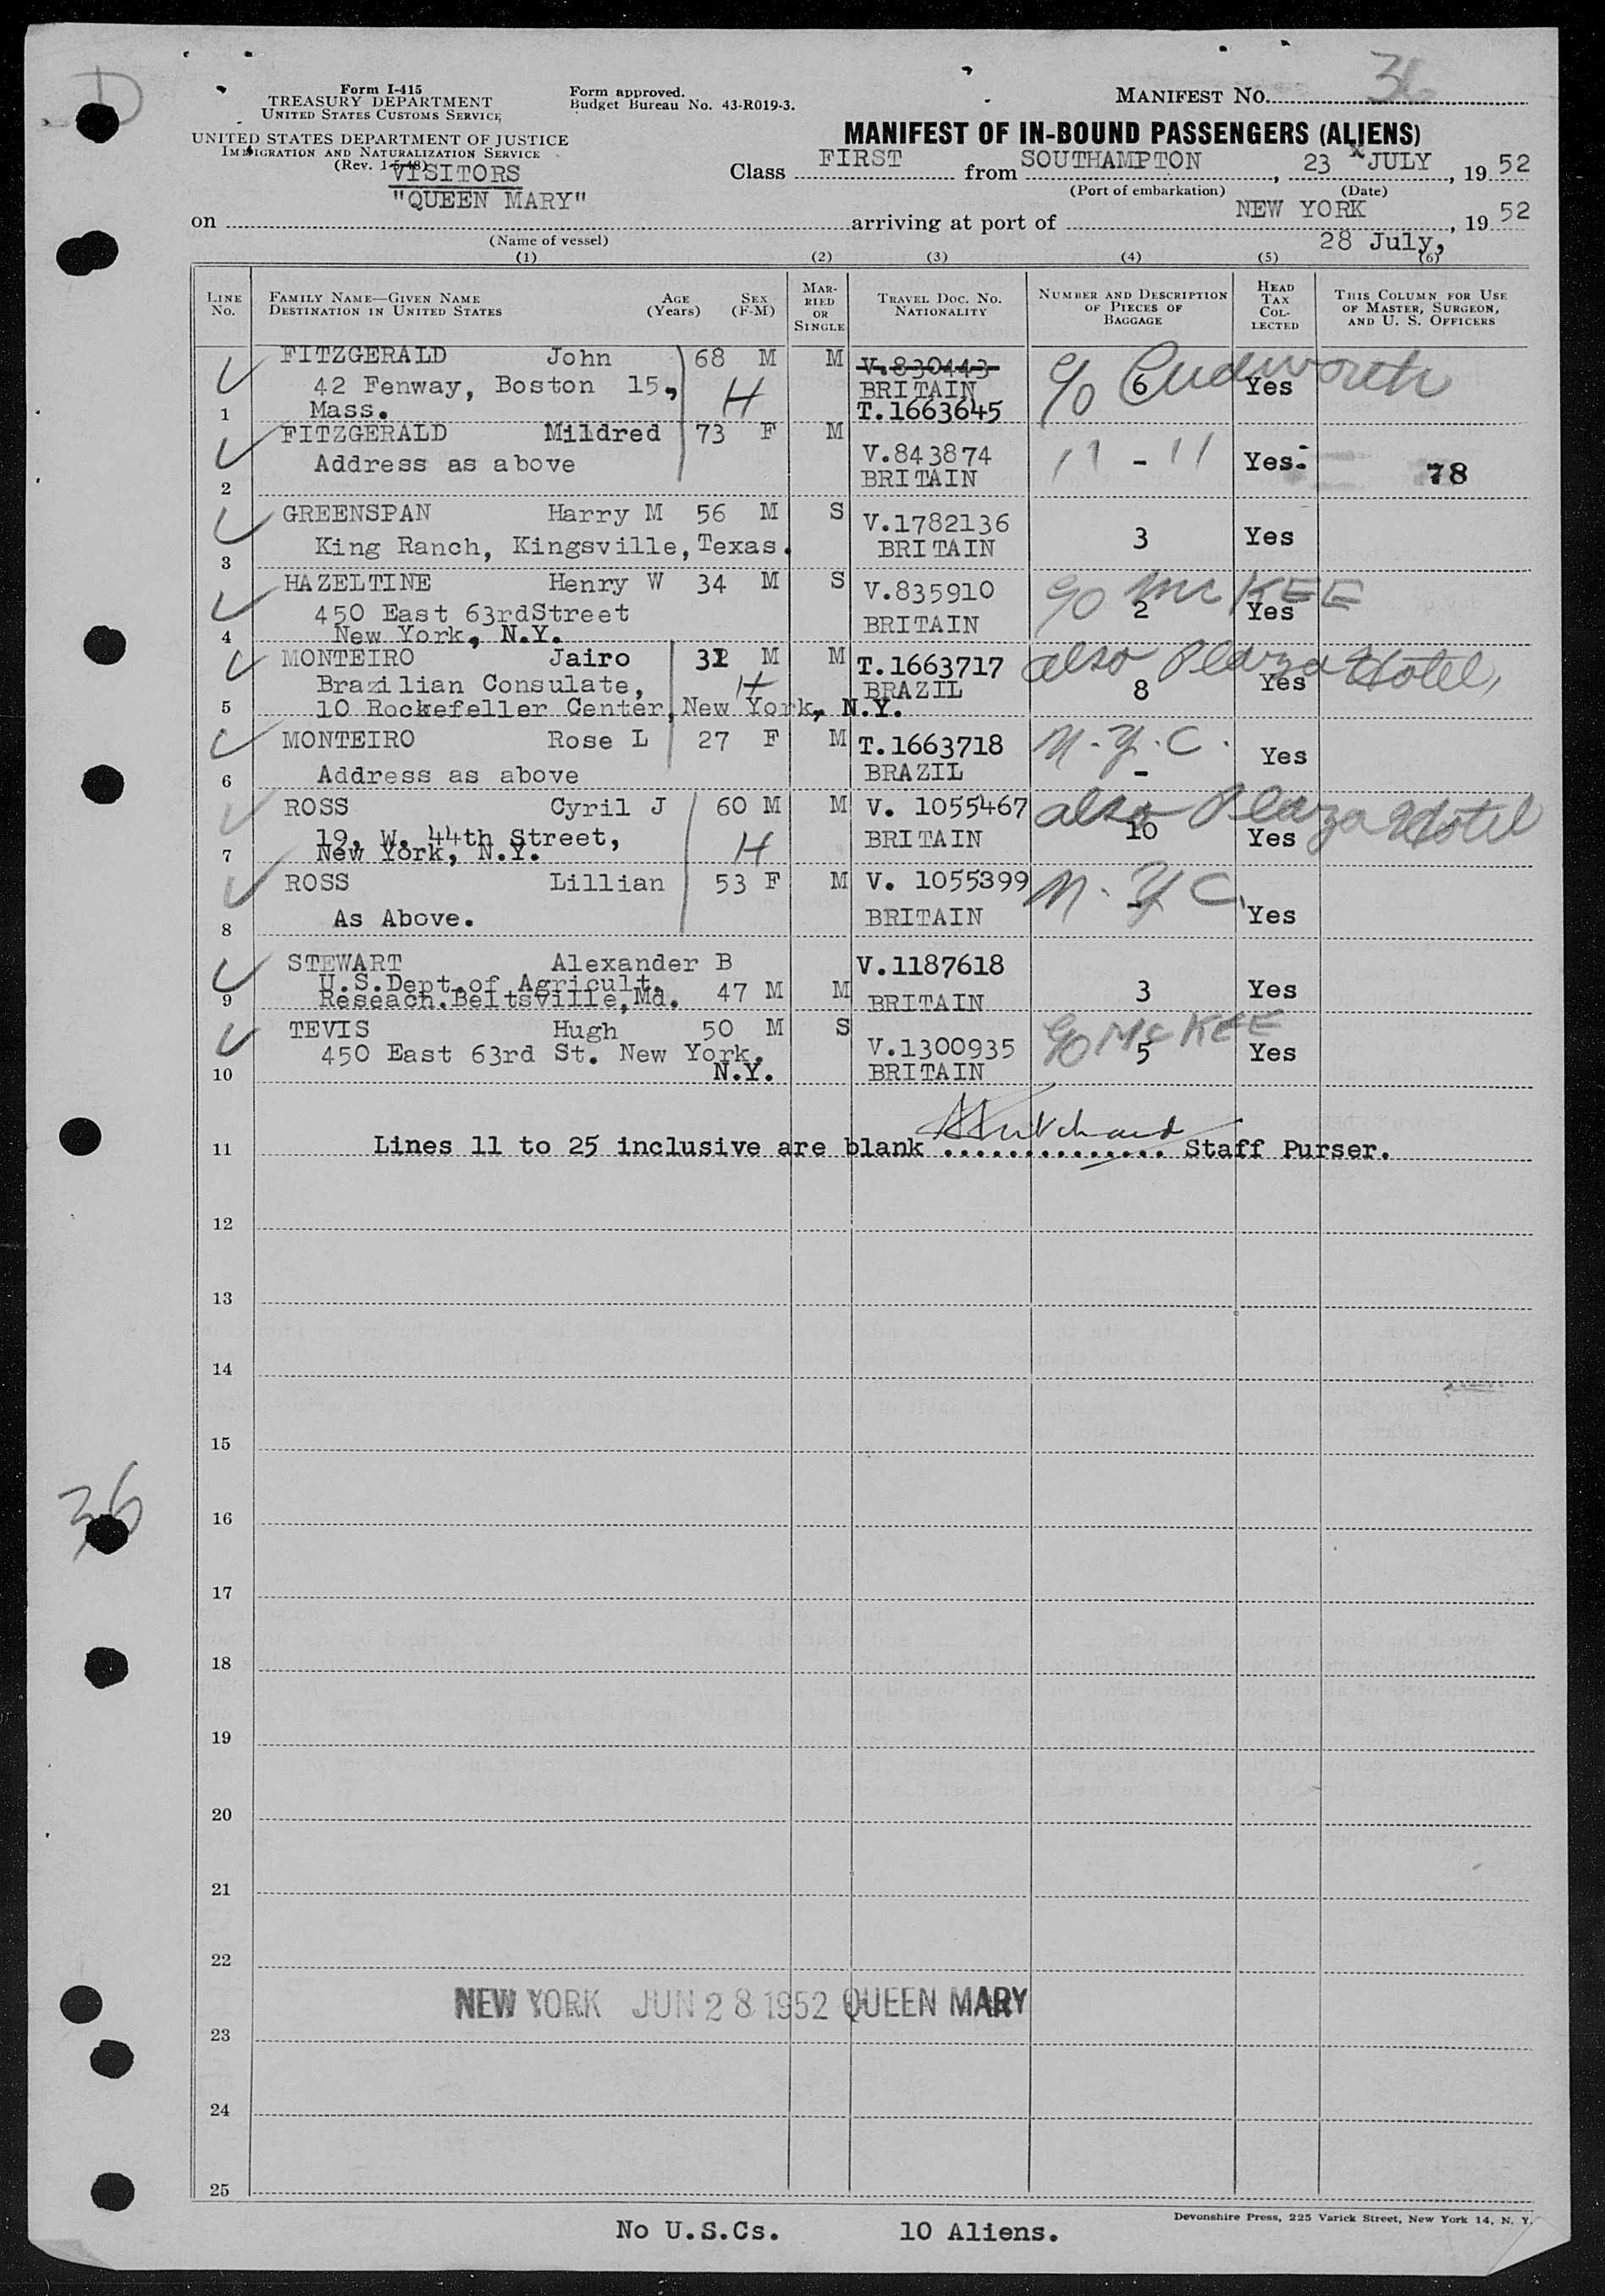 D
Form I-415
TREASURY DEPARTMENT
UNITED STATES CUSTOMS SERVICE
UNITED STATES DEPARTMENT OF JUSTICE
IMMIGRATION AND NATURALIZATION SERVICE
(Rev. 1-5-48)
Form approved.
Budget Bureau No. 43-R019-3.
MANIFEST NO. 36
MANIFEST OF IN-BOUND PASSENGERS (ALIENS)
Class FIRST from SOUTHAMPTON, 23 JULY, 19 52
(Port of embarkation) (Date)
VISITORS
on "QUEEN MARY" arriving at port of NEW YORK, 19 52
(Name of vessel) 28 July,
(1) (2) (3) (4) (5) (6)
LINE NO. FAMILY NAME—GIVEN NAME DESTINATION IN UNITED STATES AGE (Years) SEX (F-M) MARRIED OR SINGLE TRAVEL DOC. NO. NATIONALITY NUMBER AND DESCRIPTION OF PIECES OF BAGGAGE HEAD TAX COLLECTED THIS COLUMN FOR USE OF MASTER, SURGEON, AND U. S. OFFICERS
FITZGERALD John 68 M M V.830443
42 Fenway, Boston 15, H BRITAIN 6 Yes c/o Cudworth
1 Mass. T.1663645
FITZGERALD Mildred 73 F M V.843874
Address as above BRITAIN " - " Yes. 78
2
GREENSPAN Harry M 56 M S V.1782136
King Ranch, Kingsville, Texas. BRITAIN 3 Yes
3
HAZELTINE Henry W 34 M S V.835910 c/o McKEE
450 East 63rdStreet BRITAIN 2 Yes
4 New York, N.Y.
MONTEIRO Jairo 32 M M T.1663717 also Plaza Hotel,
Brazilian Consulate, H BRAZIL 8 Yes
5 10 Rockefeller Center, New York, N.Y.
MONTEIRO Rose L 27 F M T.1663718 N.Y.C.
Address as above BRAZIL - Yes
6
ROSS Cyril J 60 M M V. 1055467 also Plaza Hotel
19, W. 44th Street, H BRITAIN 10 Yes
7 New York, N.Y.
ROSS Lillian 53 F M V. 1055399 N.Y.C.
As Above. BRITAIN - Yes
8
STEWART Alexander B V.1187618
U.S.Dept.of Agricult.
9 Reseach.Beltsville,Md. 47 M M BRITAIN 3 Yes
TEVIS Hugh 50 M S V.1300935 c/o McKEE
450 East 63rd St. New York. 5 Yes
10 N.Y. BRITAIN
11 Lines 11 to 25 inclusive are blank .............. Staff Purser.
12
13
14
15
36
16
17
18
19
20
21
22
NEW YORK JUN 28 1952 QUEEN MARY
23
24
25
No U.S.Cs. 10 Aliens.
Devonshire Press, 225 Varick Street, New York 14, N. Y.